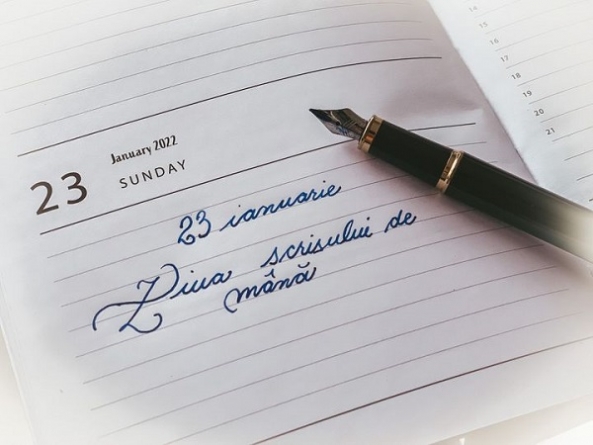 January 2022
23 SUNDAY
23 ianuarie
Ziua scrisului de
mână
14
15
16
17
18
19
20
21